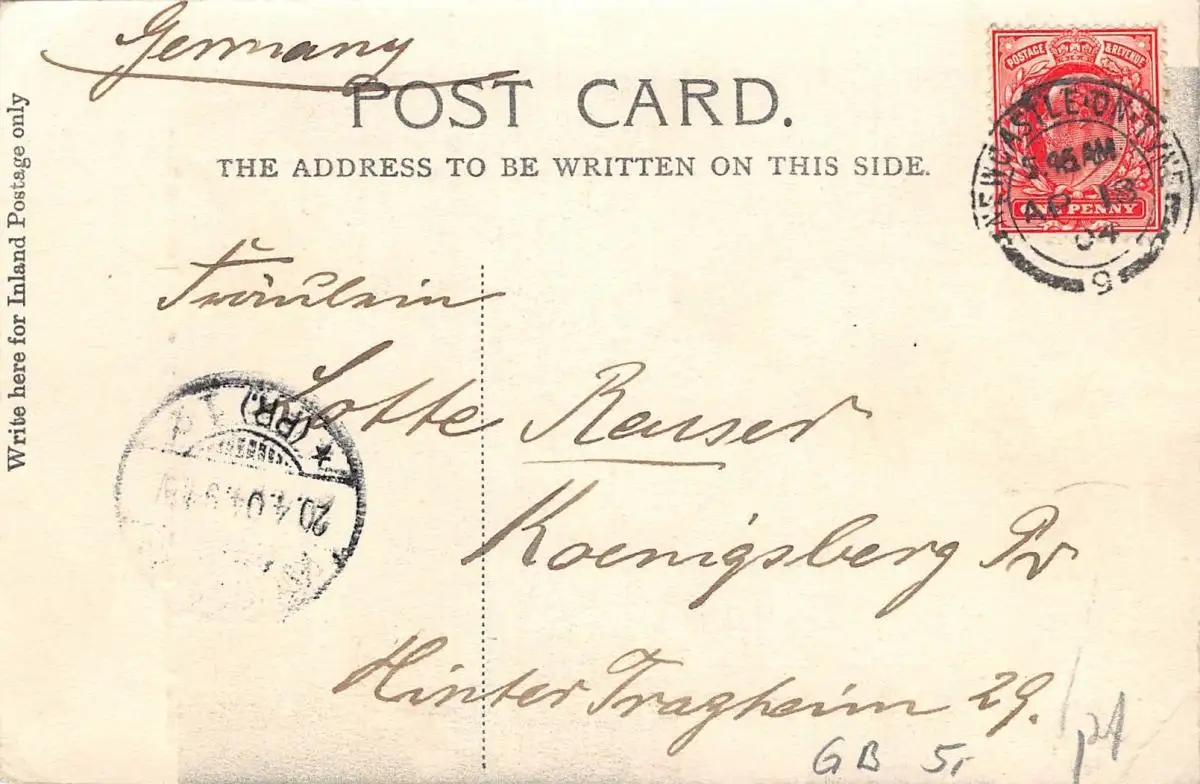 Germany
POST CARD.
THE ADDRESS TO BE WRITTEN ON THIS SIDE.
Write here for Inland Postage only
POSTAGE & REVENUE
ONE PENNY
NEWCASTLE-ON-TYNE
AM
AP 18
04
9
Fräulein
Lotte Reuser
Koenigsberg Pr
Hinter Tragheim 29.
(PR.)
20.4.04
GB 5,